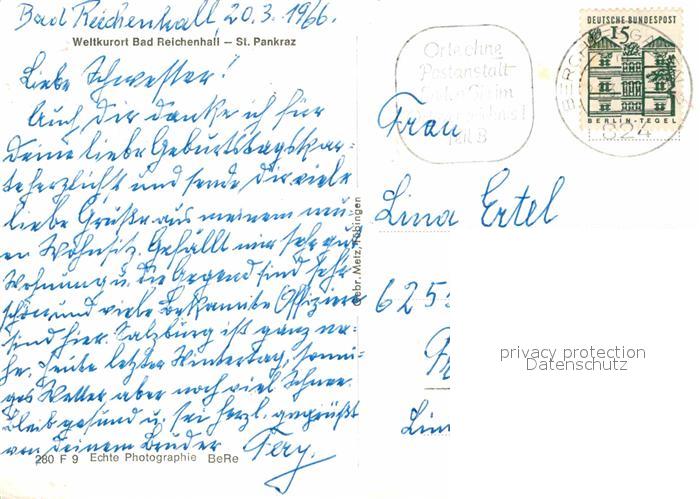 Bad Reichenhall, 20.3.1966.
Weltkurort Bad Reichenhall – St. Pankraz
Liebe Schwester!
Auch Dir danke ich für
Deine liebe Geburtstagskar-
te herzlichst und sende Dir viele
liebe Grüße aus meinem neu-
en Wohnsitz. Gefällt mir sehr gut
Wohnung u. die Gegend sind sehr
schön und viele bekannte Offiziere
sind hier. Salzburg ist ganz na-
he. Heute letzter Wintertag, sonni-
ges Wetter aber noch viel Schnee
Bleib gesund u. sei herzl. gegrüßt
von Deinem Bruder Fery.
280 F 9 Echte Photographie BeRe
Gebr. Metz, Tübingen
Orte ohne
Postanstalt
Teil B
DEUTSCHE BUNDESPOST
15
BERLIN-TEGEL
824
Frau
Lina Ertel
625
privacy protection
Datenschutz